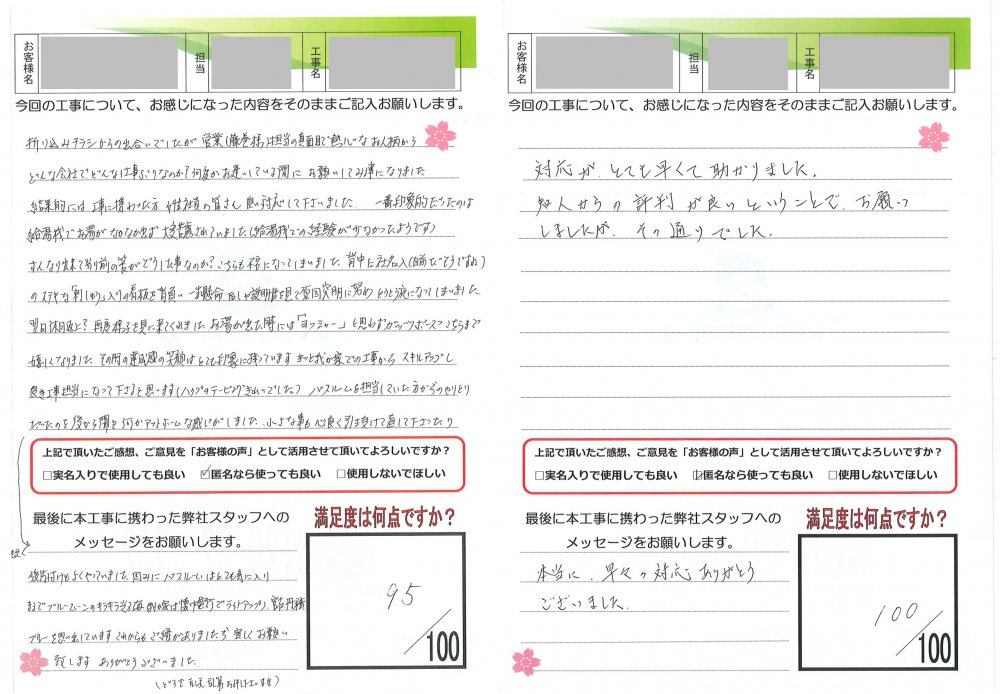 お客様名
担当
工事名
今回の工事について、お感じになった内容をそのままご記入お願いします。
折り込みチラシからの出合いでしたが 営業 担当の真面目で熱心なお人柄から
どんな会社でどんな仕事ぶりなのか?何度かお逢いしている間に お願いしてみる事になりました
結果的には 工事に携わった方 皆さん 良い対応して下さいました 一番印象的だったのは
給湯機でお湯がなかなか出ず 大苦戦されていました(給湯機での経験が少なかったようです)
すんなり出来て当り前の筈がどうした事なのか? こちらも不安になってしまいました 背中に
の ステキな 入りの看板を背負い 一生懸命 説明書を見て原因究明に努め
翌日 再度様子を見に来てくれました お湯が出た時には「ヨッシャー」と思わずガッツポーズ こちらまで
嬉しくなりました その時の達成感の笑顔はとても印象に残っています きっと我が家での工事から スキルアップし
良き工事担当になって下さると思います バスルームを担当していた方からのやりとり
だったのを後から聞き 何かアットホームな感じがしました 小さな事も心良く引き受けて直して下さったり
上記で頂いたご感想、ご意見を「お客様の声」として活用させて頂いてよろしいですか?
□実名入りで使用しても良い ☑匿名なら使っても良い □使用しないでほしい
最後に本工事に携わった弊社スタッフへの
メッセージをお願いします。
後片付けもよくやっていました 因みに バスルームはとても気に入り
まるでブルームーンのキラキラ光る海 でライトアップ)
ブルーを思い出しています これからも ご縁がありましたら 宜しくお願い
致します ありがとうございました
満足度は何点ですか?
95
/100
お客様名
担当
工事名
今回の工事について、お感じになった内容をそのままご記入お願いします。
対応が とても早くて助かりました。
知人からの評判が良いということで、お願い
しましたが、その通りでした。
上記で頂いたご感想、ご意見を「お客様の声」として活用させて頂いてよろしいですか?
□実名入りで使用しても良い ☑匿名なら使っても良い □使用しないでほしい
最後に本工事に携わった弊社スタッフへの
メッセージをお願いします。
本当に、早々の対応ありがとう
ございました。
満足度は何点ですか?
100
/100